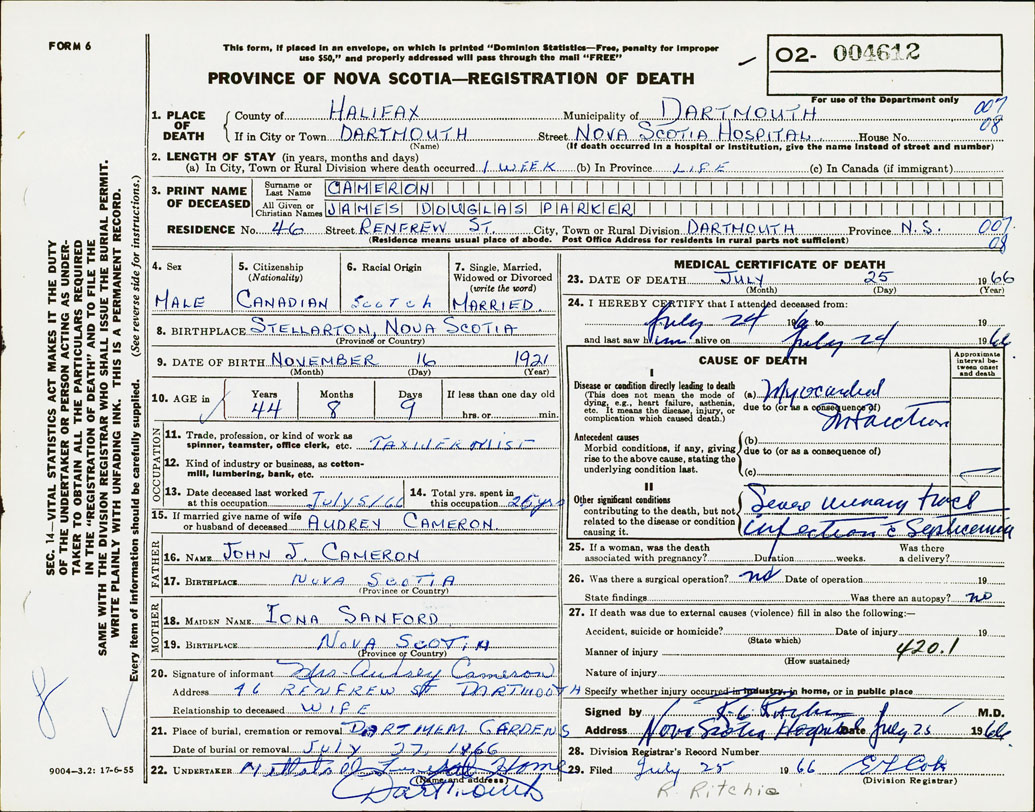 FORM 6
This form, if placed in an envelope, on which is printed "Dominion Statistics—Free, penalty for improper
use $50," and properly addressed will pass through the mail "FREE"
PROVINCE OF NOVA SCOTIA—REGISTRATION OF DEATH
02- 004612
For use of the Department only
007
08
1. PLACE OF DEATH County of HALIFAX Municipality of DARTMOUTH
If in City or Town DARTMOUTH Street NOVA SCOTIA HOSPITAL House No.
(Name) (If death occurred in a hospital or institution, give the name instead of street and number)
2. LENGTH OF STAY (in years, months and days)
(a) In City, Town or Rural Division where death occurred 1 WEEK (b) In Province LIFE (c) In Canada (if immigrant)
3. PRINT NAME OF DECEASED Surname or Last Name CAMERON
All Given or Christian Names JAMES DOUGLAS PARKER
RESIDENCE No. 46 Street RENFREW ST. City, Town or Rural Division DARTMOUTH Province N.S. 007
08
(Residence means usual place of abode. Post Office Address for residents in rural parts not sufficient)
4. Sex MALE
5. Citizenship (Nationality) CANADIAN
6. Racial Origin Scotch
7. Single, Married, Widowed or Divorced (write the word) MARRIED.
8. BIRTHPLACE STELLARTON, NOVA SCOTIA
(Province or Country)
9. DATE OF BIRTH NOVEMBER 16 1921
(Month) (Day) (Year)
10. AGE in Years 44 Months 8 Days 9 If less than one day old
hrs. or min.
OCCUPATION
11. Trade, profession, or kind of work as spinner, teamster, office clerk, etc. TAXIDERMIST
12. Kind of industry or business, as cotton-mill, lumbering, bank, etc.
13. Date deceased last worked at this occupation July 5/66
14. Total yrs. spent in this occupation 25 yrs
15. If married give name of wife or husband of deceased AUDREY CAMERON.
FATHER
16. NAME JOHN J. CAMERON
17. BIRTHPLACE NOVA SCOTIA
(Province or Country)
MOTHER
18. MAIDEN NAME IONA SANFORD
19. BIRTHPLACE NOVA SCOTIA
(Province or Country)
20. Signature of informant Mrs. Audrey Cameron
Address 46 RENFREW ST DARTMOUTH
Relationship to deceased WIFE
21. Place of burial, cremation or removal DARTMEM. GARDENS
Date of burial or removal JULY 27, 1966
22. UNDERTAKER Funeral Home
(Name and address)
Dartmouth
MEDICAL CERTIFICATE OF DEATH
23. DATE OF DEATH JULY 25 1966
(Month) (Day) (Year)
24. I HEREBY CERTIFY that I attended deceased from:
July 24 19 to 19
and last saw him alive on July 24 1966
CAUSE OF DEATH
Approximate interval between onset and death
I
Disease or condition directly leading to death
(This does not mean the mode of dying, e.g., heart failure, asthenia, etc. It means the disease, injury, or complication which caused death.)
(a) Myocardial
due to (or as a consequence of)
Infarction
Antecedent causes
Morbid conditions, if any, giving rise to the above cause, stating the underlying condition last.
(b)
due to (or as a consequence of)
(c)
II
Other significant conditions
contributing to the death, but not related to the disease or condition causing it.
Severe urinary tract
infection c Septicemia
25. If a woman, was the death associated with pregnancy? Duration weeks. Was there a delivery?
26. Was there a surgical operation? no Date of operation 19
State findings Was there an autopsy? no
27. If death was due to external causes (violence) fill in also the following:—
Accident, suicide or homicide? Date of injury 19
(State which)
Manner of injury 420.1
(How sustained)
Nature of injury
Specify whether injury occurred in industry, in home, or in public place
Signed by M.D.
Address Nova Scotia Hospital Date July 25 1966
28. Division Registrar's Record Number
29. Filed July 25 1966
(Division Registrar)
R. Ritchie
SEC. 14—VITAL STATISTICS ACT MAKES IT THE DUTY
OF THE UNDERTAKER OR PERSON ACTING AS UNDER-
TAKER TO OBTAIN ALL THE PARTICULARS REQUIRED
IN THE "REGISTRATION OF DEATH" AND TO FILE THE
SAME WITH THE DIVISION REGISTRAR WHO SHALL ISSUE THE BURIAL PERMIT.
WRITE PLAINLY WITH UNFADING INK. THIS IS A PERMANENT RECORD.
Every item of information should be carefully supplied. (See reverse side for instructions.)
9004—3.2: 17-6-55